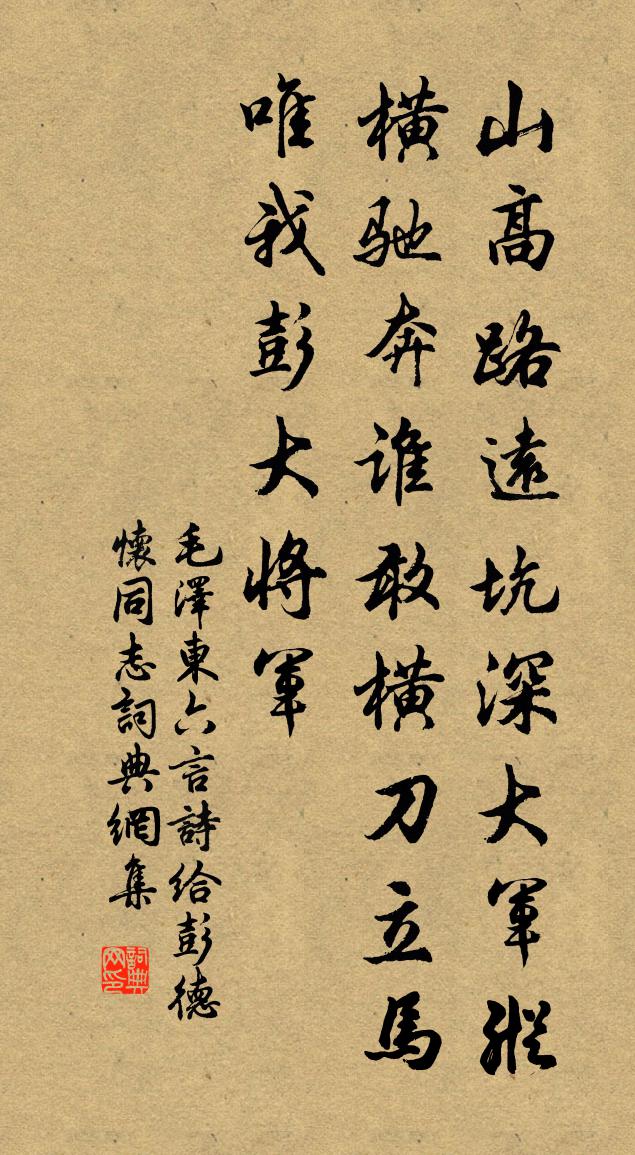 山高路遠坑深大軍縱
橫馳奔誰敢橫刀立馬
唯我彭大將軍
毛澤東六言詩給彭德
懷同志詞典網集
詞典
网印